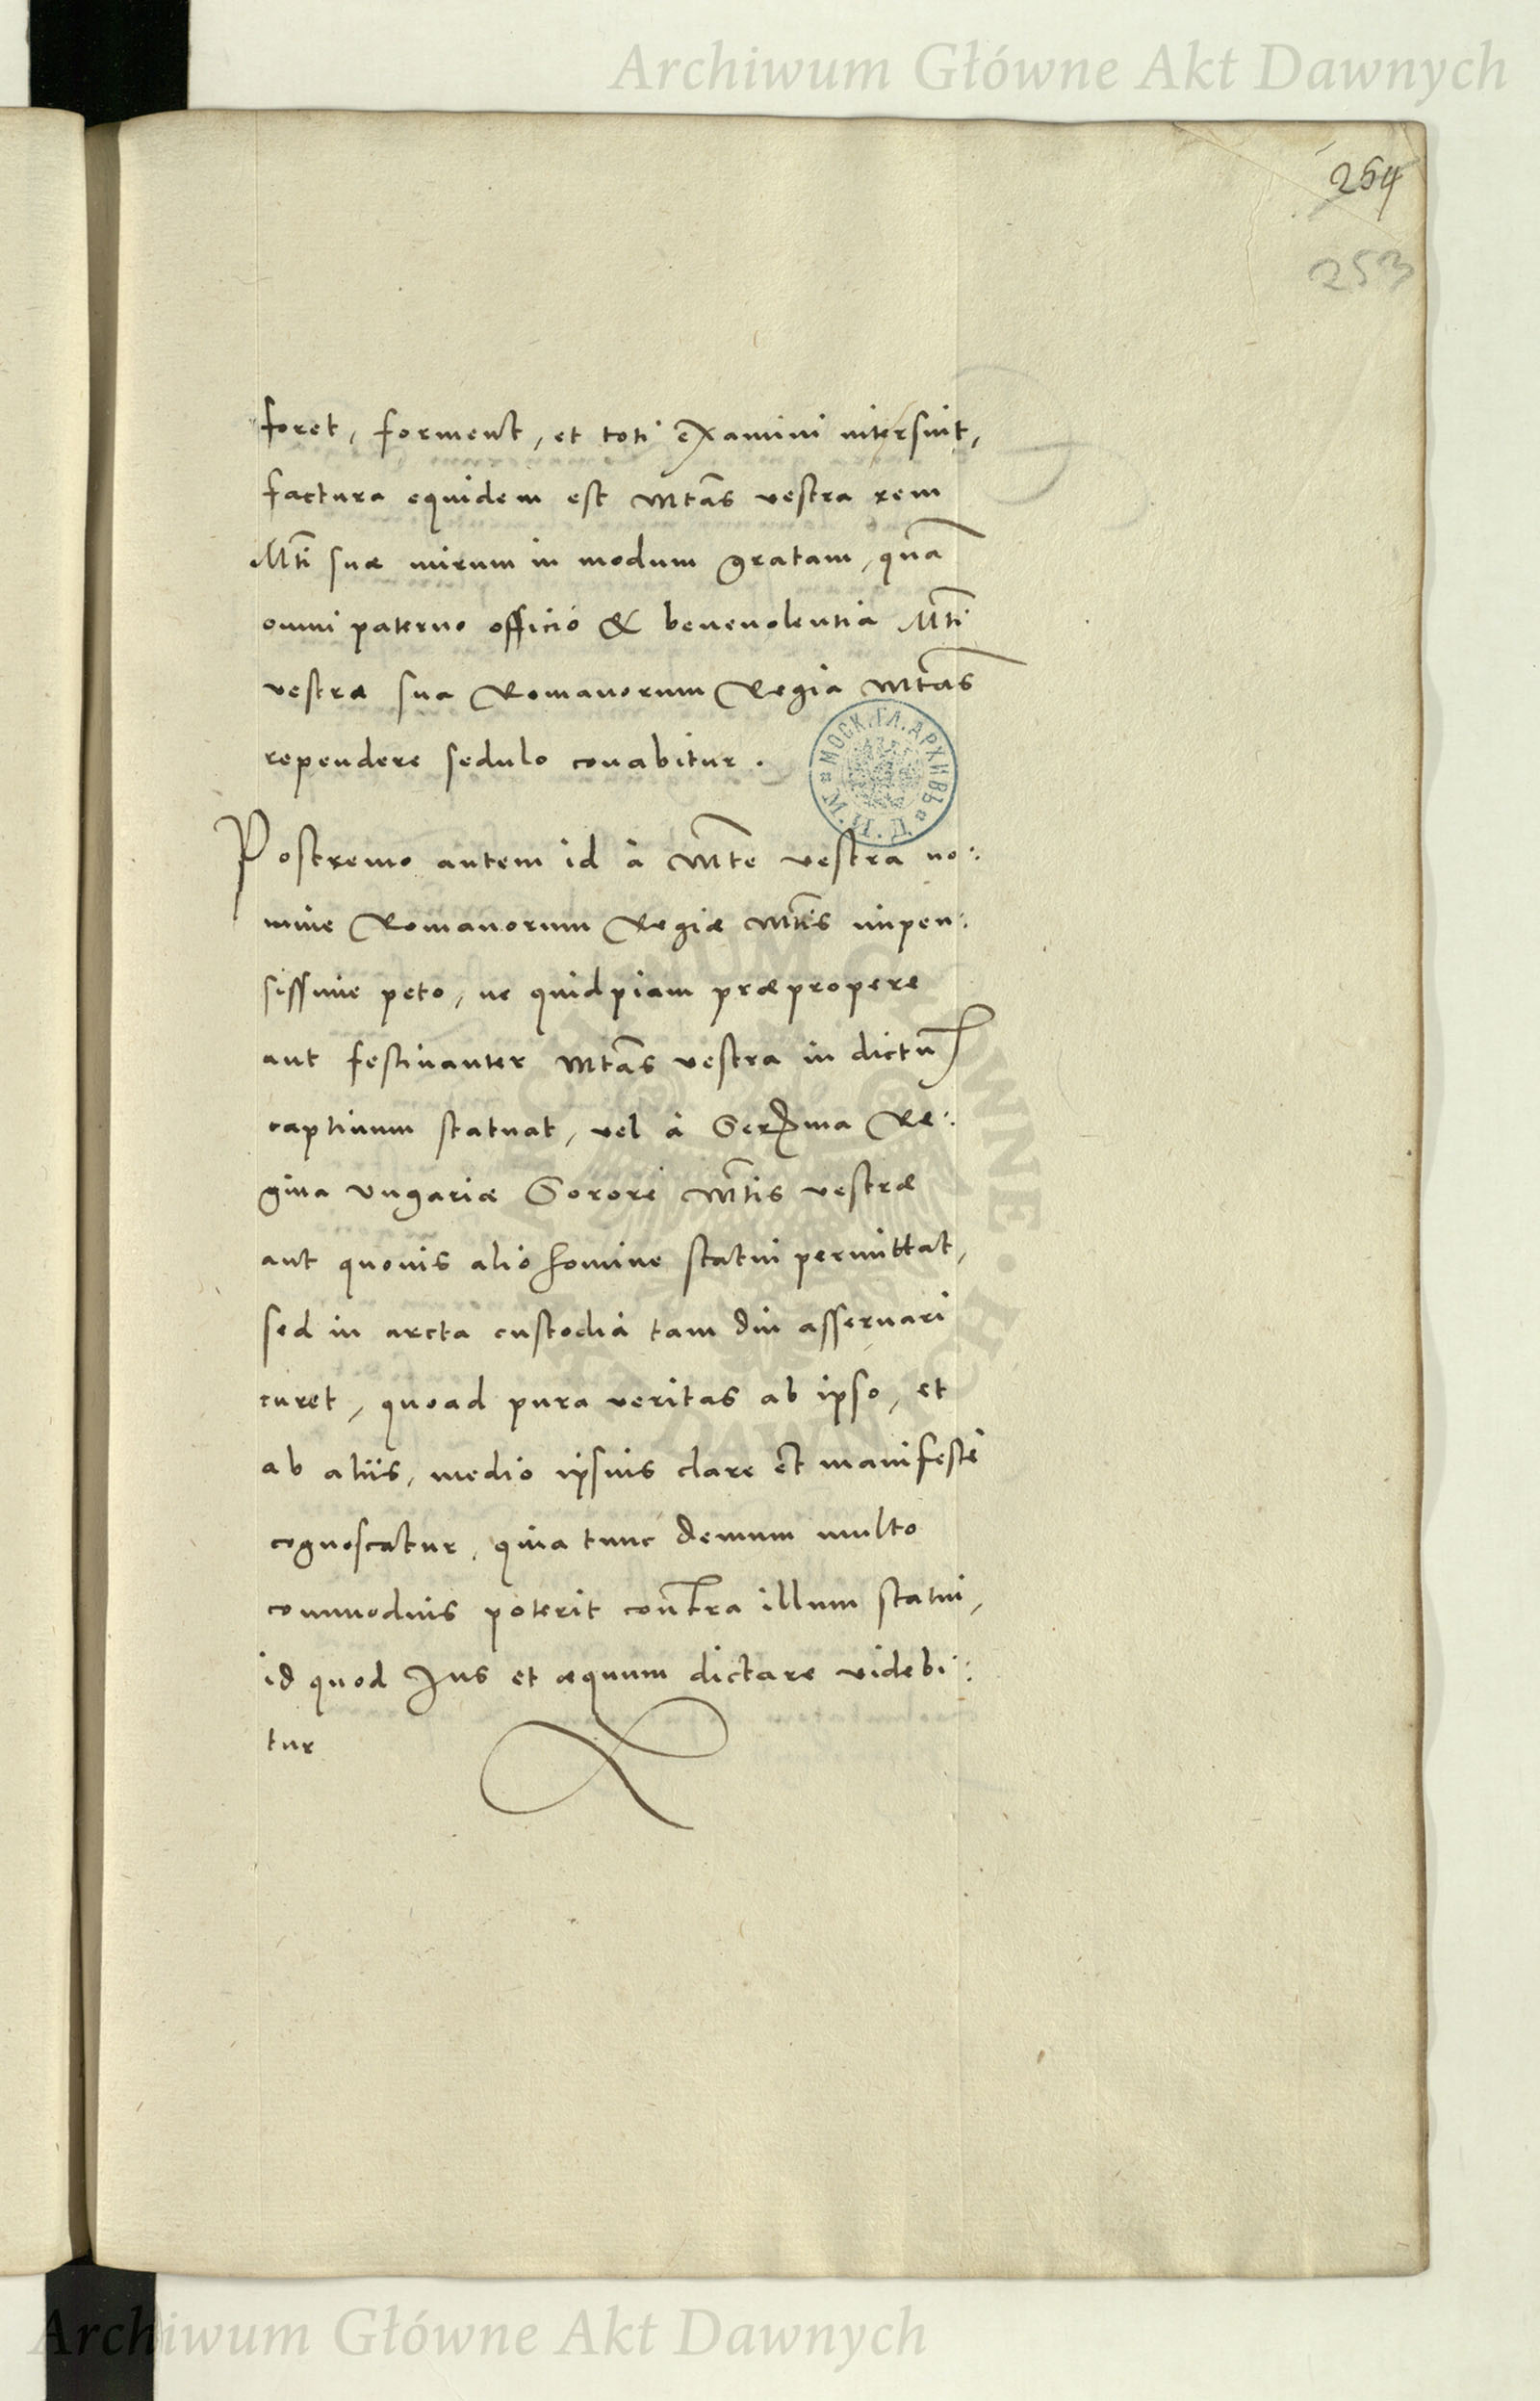 Archiwum Główne Akt Dawnych
254
253
foret, forment, et toti examini intersint,
factura equidem est Mtas vestra rem
Mti suæ mirum in modum gratam, quã
omni paterno officio & benevolentia Mti
vestræ sua Romanorum Regia Mtas
rependere sedulo conabitur.
МОСК. ГЛ. АРХИВЪ М. И. Д.
Postremo autem id à Mte vestra no:
mine Romanorum Regiæ Mtis impen:
sissime peto, ne quidpiam præpropere
aut festinanter Mtas vestra in dictũ
captiuum statuat, vel à Serma Re:
gina Vngariæ Sorore Mtis vestræ
aut quouis alio homine statui permittat,
sed in arcta custodia tam diu asseruari
curet, quoad pura veritas ab ipso, et
ab aliis, medio ipsius clare et manifeste
cognoscatur, quia tunc demum multo
commodius poterit contra illum statui,
id quod Jus et æquum dictare videbi:
tur
ARCHIWUM GŁÓWNE AKT DAWNYCH
Archiwum Główne Akt Dawnych